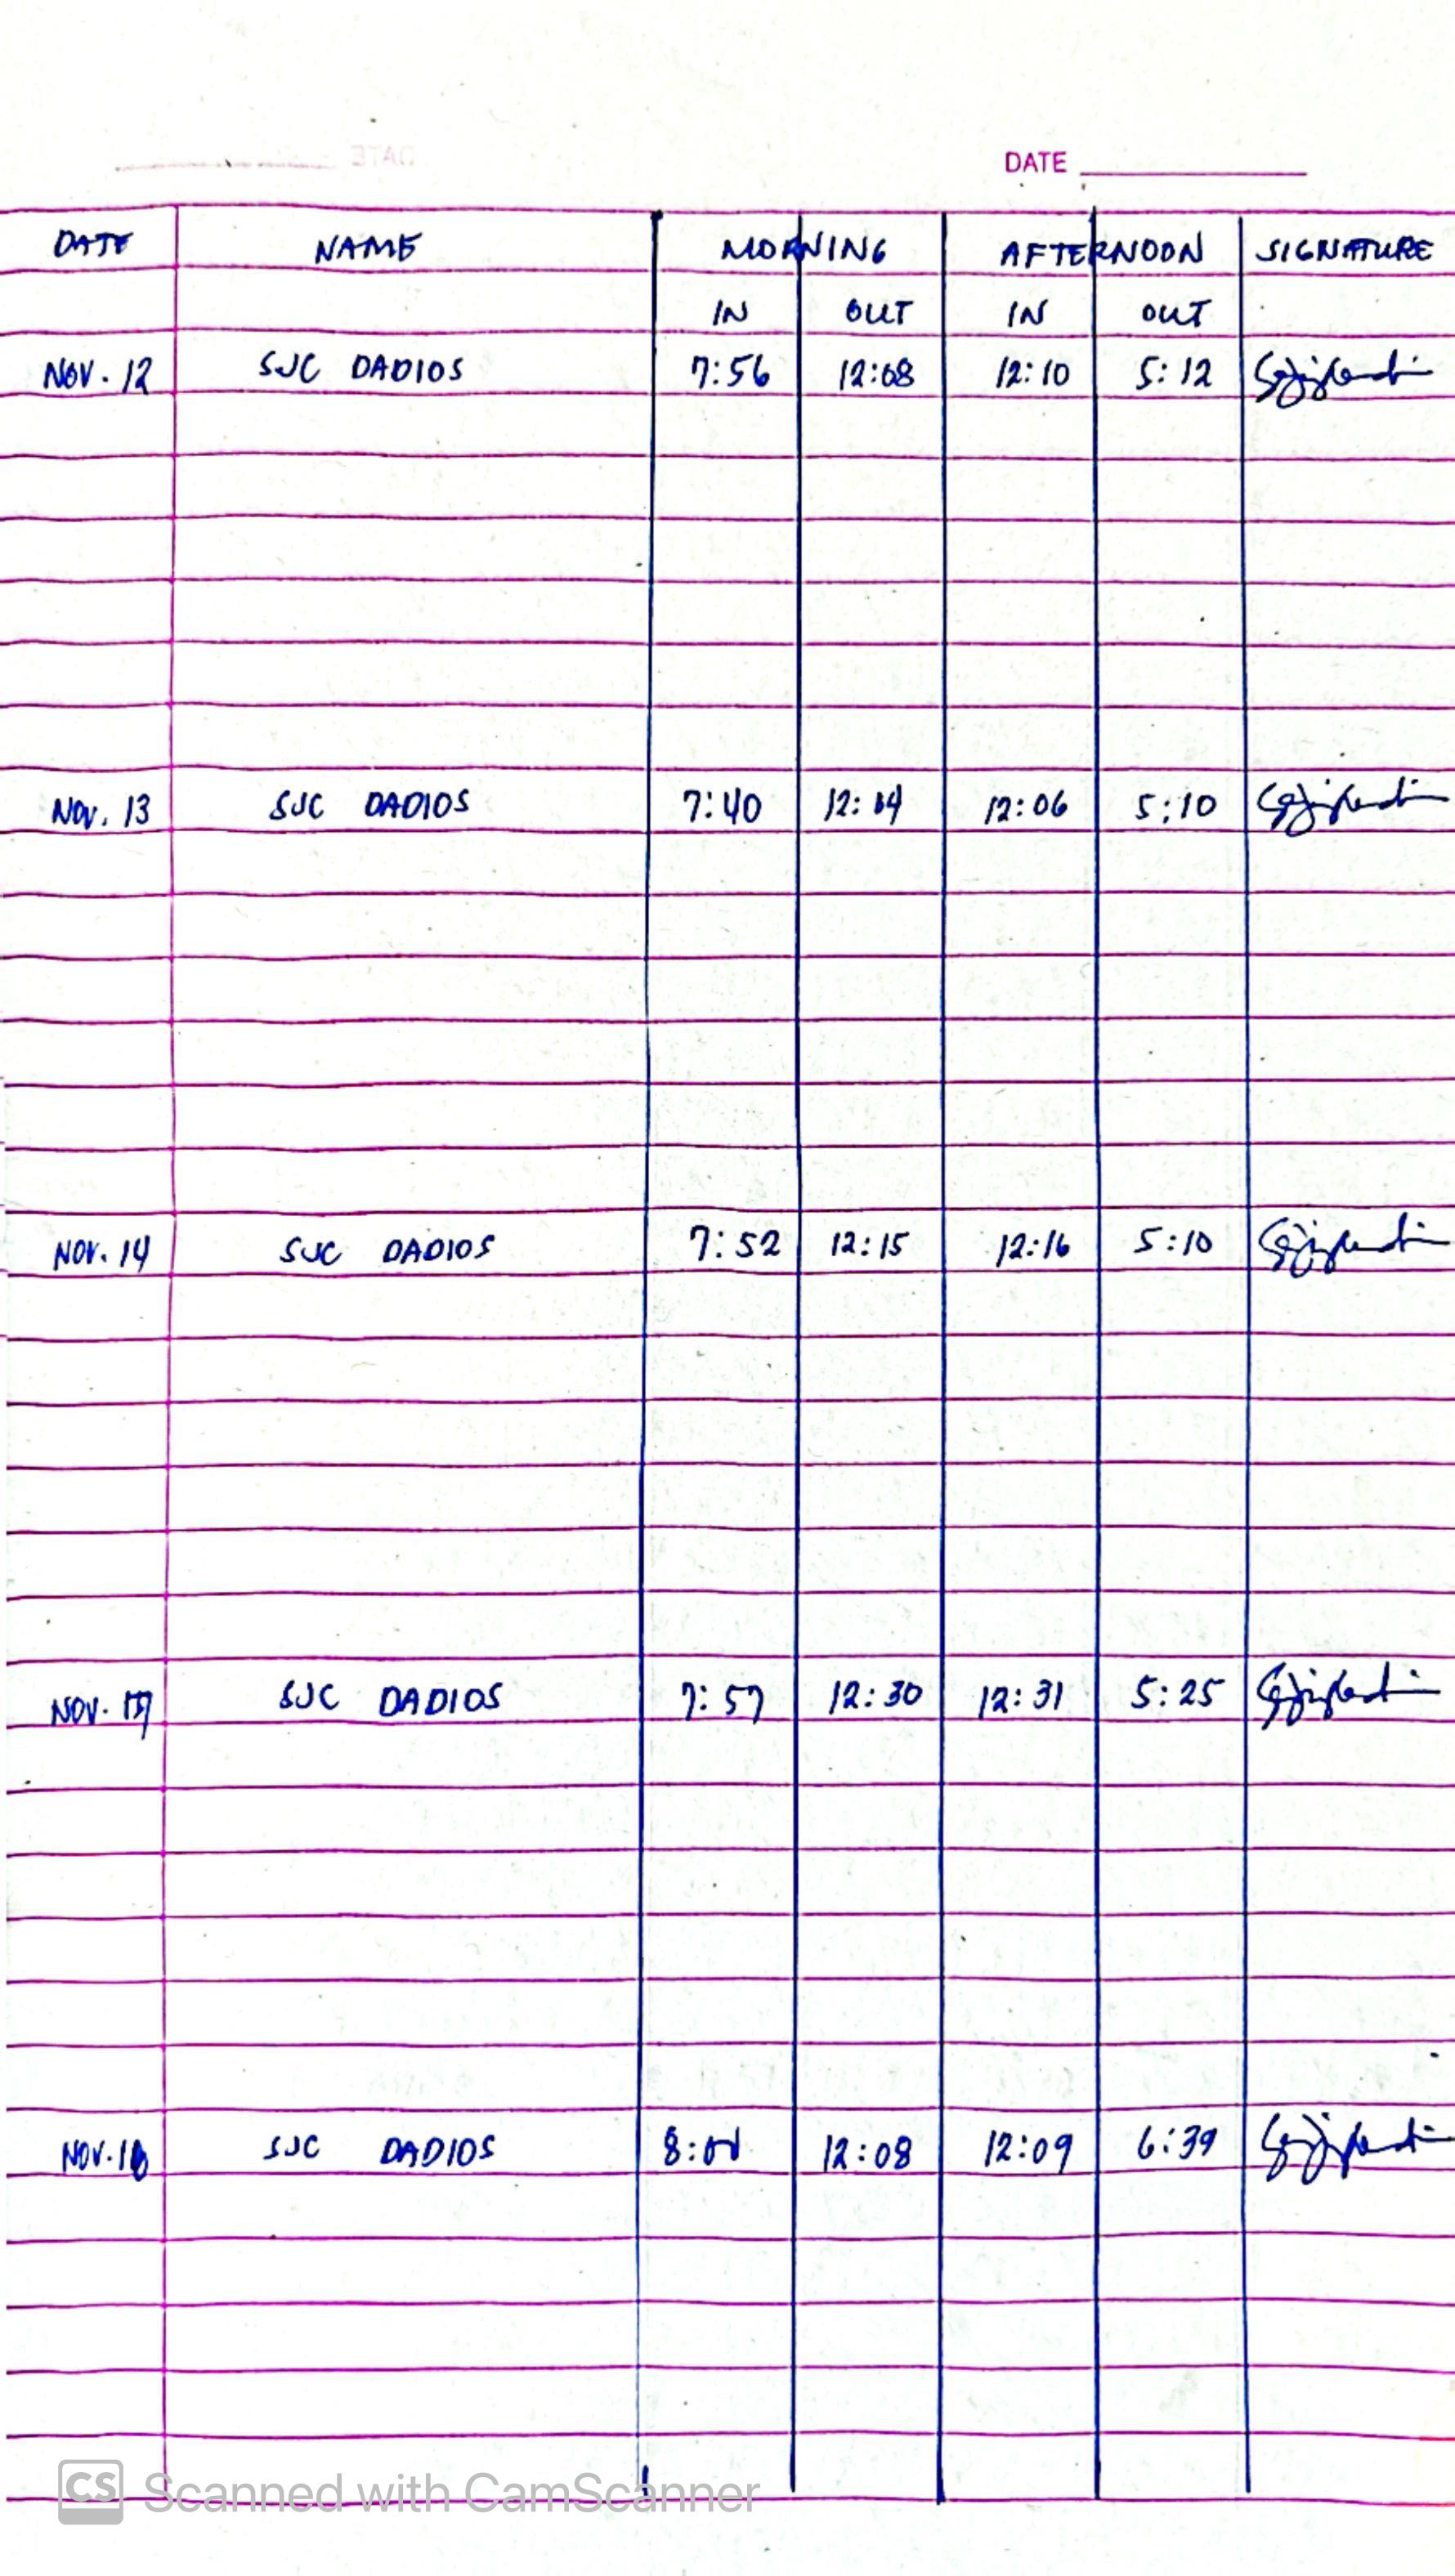 DATE
DATE NAME MORNING AFTERNOON SIGNATURE
IN OUT IN OUT
NOV. 12 SJC DADIOS 7:56 12:08 12:10 5:12
NOV. 13 SJC DADIOS 7:40 12:04 12:06 5:10
NOV. 14 SJC DADIOS 7:52 12:15 12:16 5:10
NOV. 17 SJC DADIOS 7:57 12:30 12:31 5:25
NOV. SJC DADIOS 12:08 12:09 6:39
CS Scanned with CamScanner